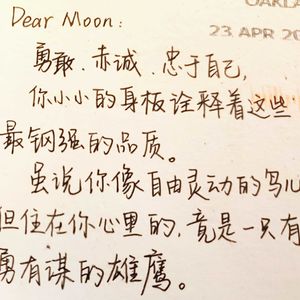 OAKLA
23 APR 20
Dear Moon:
勇敢、赤诚、忠于自己,
你小小的身板诠释着这些
最钢强的品质。
虽说你像自由灵动的鸟儿
但住在你心里的,竟是一只有
勇有谋的雄鹰。